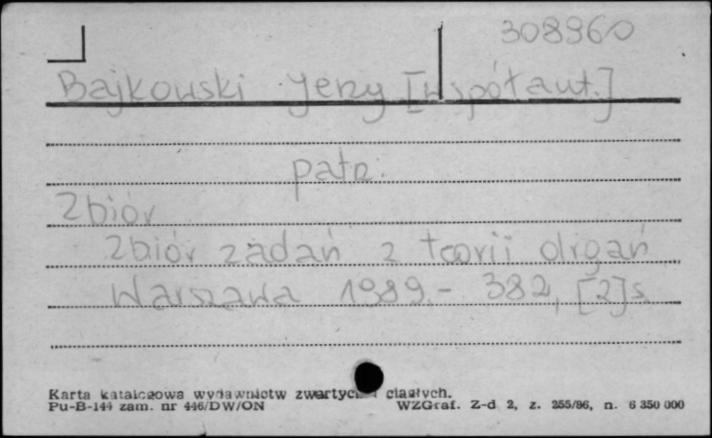 308960
Bajkowski Jerzy [współaut.]
patrz.
Zbiór
Zbiór zadań z teorii drgań
Warszawa 1989.- 382, [2]s.
Karta katalogowa wydawnictw zwartych i ciągłych.
Pu-B-144 zam. nr 446/DW/ON WZGraf. Z-d 2, z. 255/86, n. 6 350 000